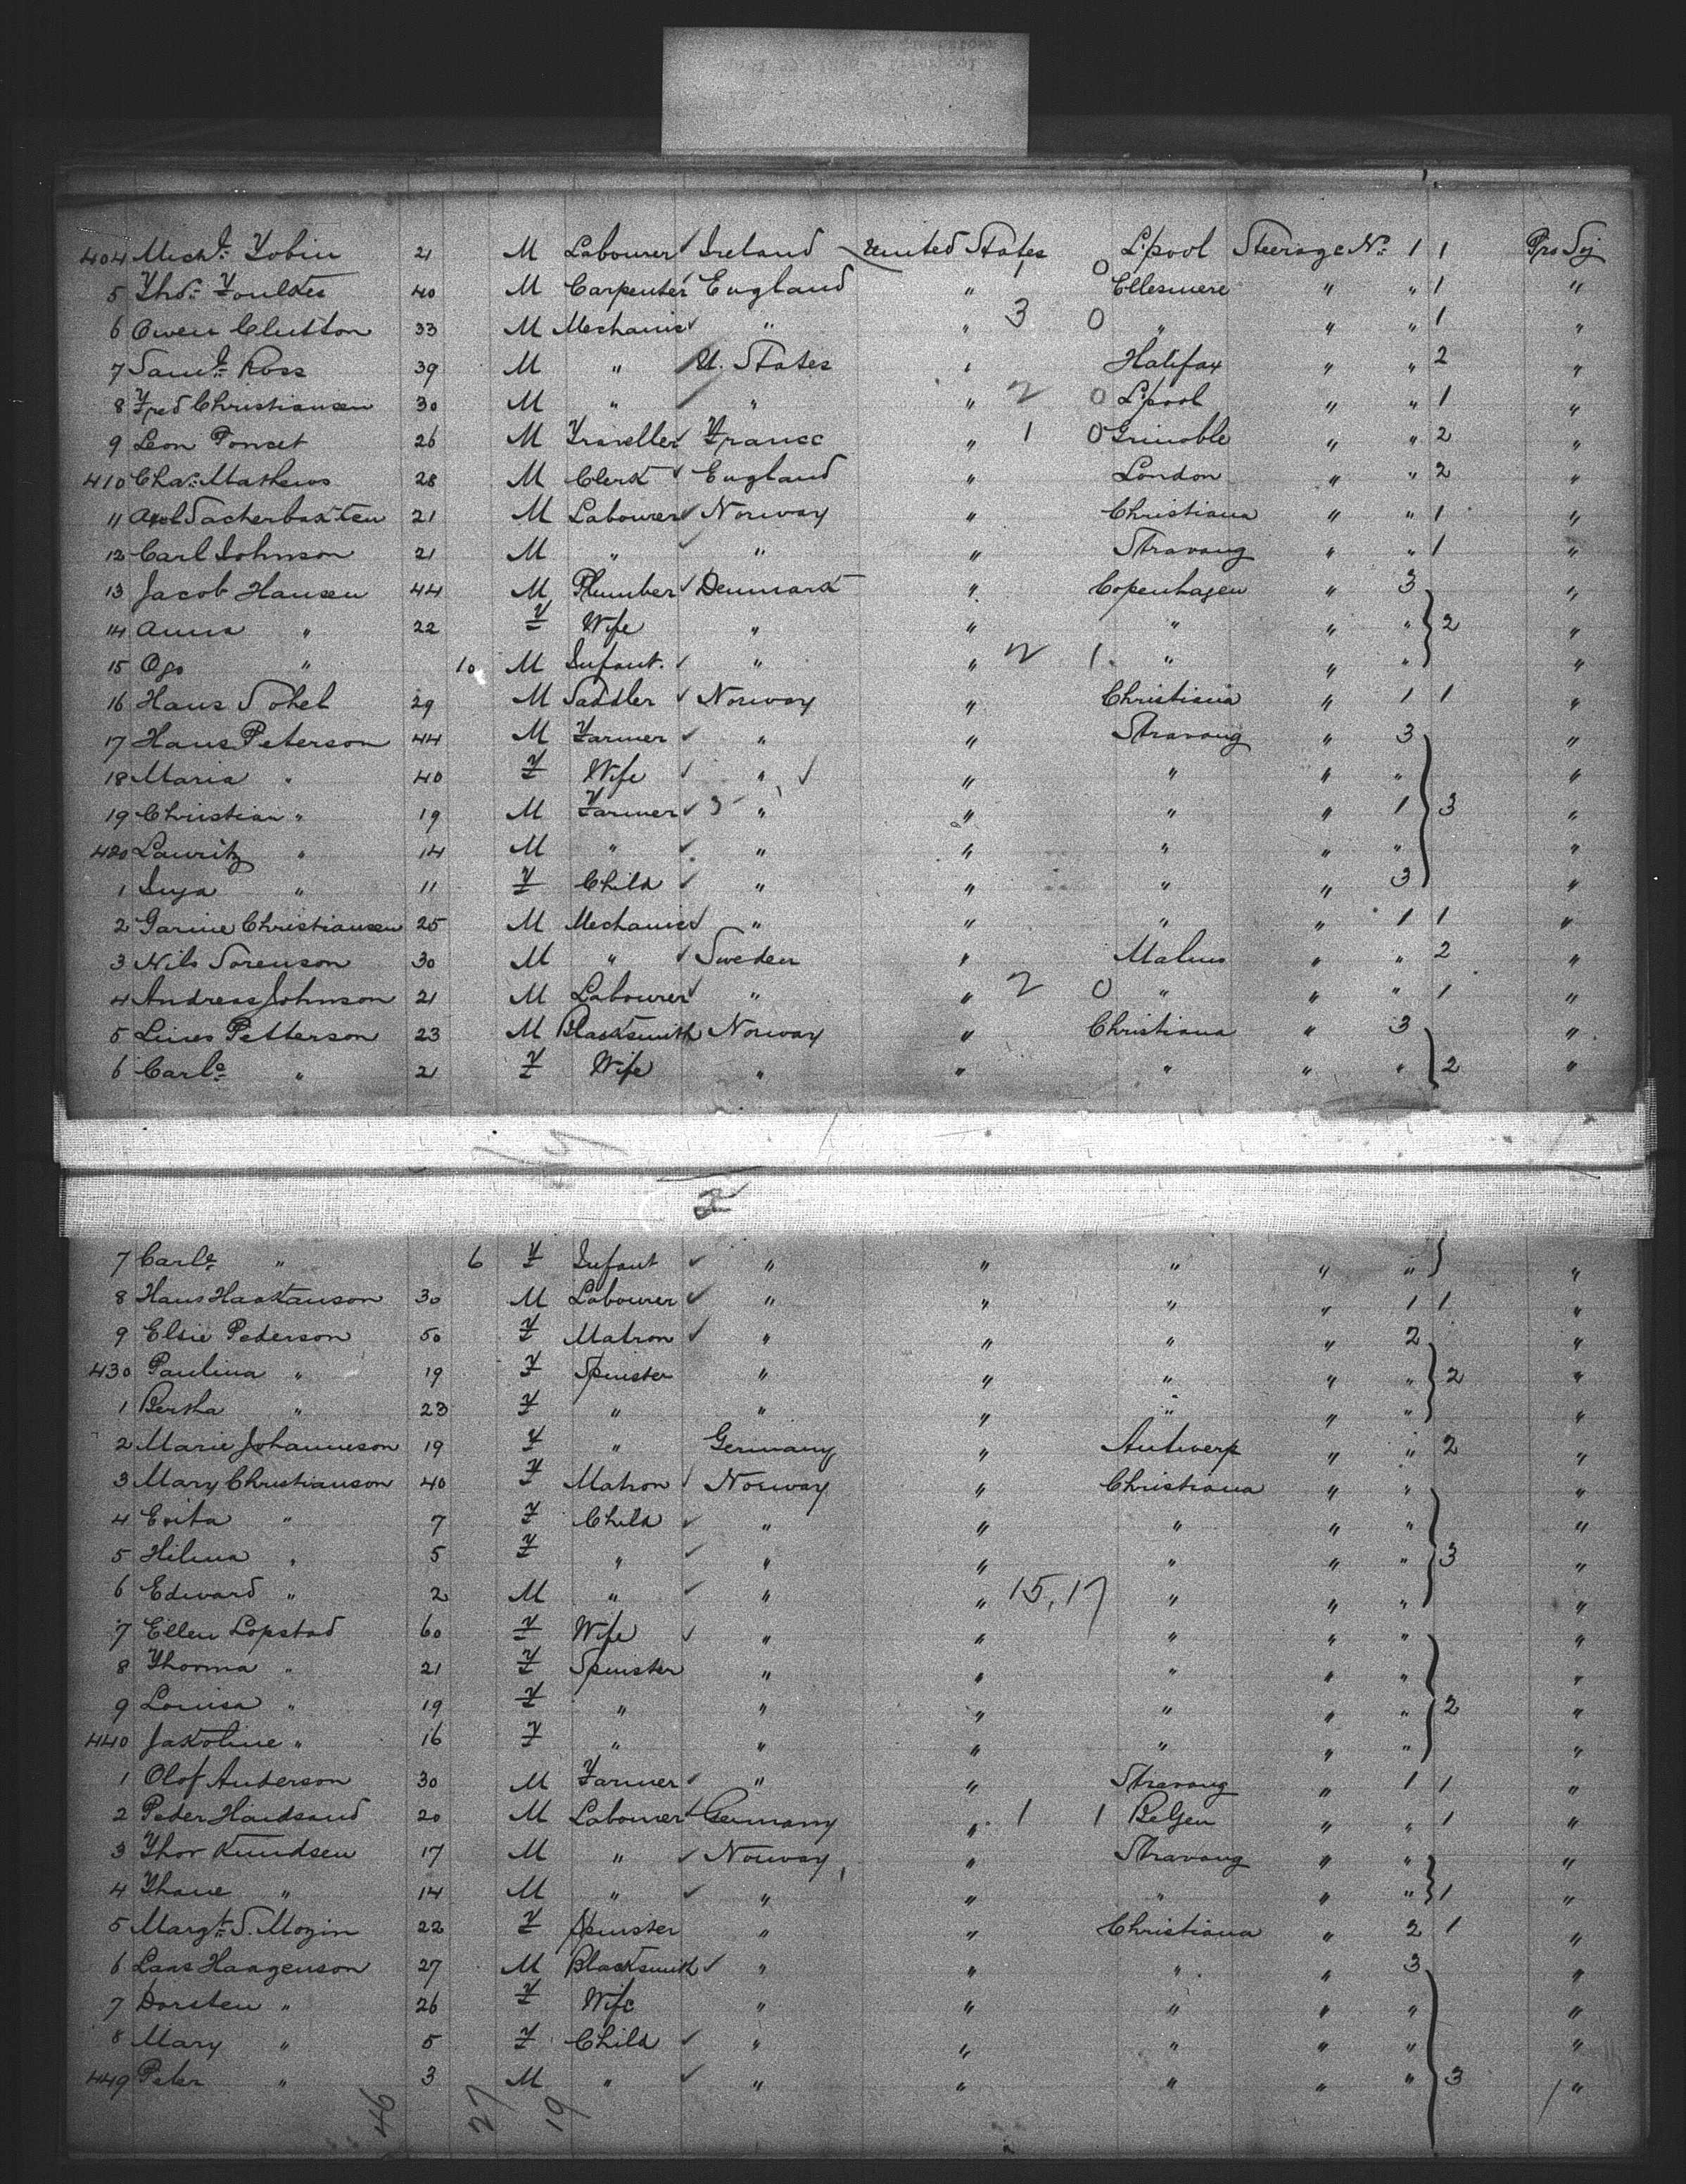 404 Michl. Tobin 21 M Labourer Ireland United States L'pool Steerage No. 1 1 Pro Soj
5 Thos. Foulkes 40 M Carpenter England " Ellesmere " " 1 "
6 Owen Clutton 33 M Mechanic " " 3 0 " " " 1 "
7 Saml. Ross 39 M " U. States " Halifax " " 2 "
8 Fred Christiansen 30 M " " " 2 0 L'pool " " 1 "
9 Leon Poncet 26 M Traveller France " 1 0 Grinoble " " 2 "
410 Chas. Mathews 28 M Clerk England " London " " 2 "
11 Axel 21 M Labourer Norway " Christiana " " 1 "
12 Carl Johnson 21 M " " " Stravang " " 1 "
13 Jacob Hansen 44 M Plumber Denmark " Copenhagen " 3 "
14 Anna " 22 F Wife " " " " " 2 "
15 Ogo " 10 M Infant " " 2 1 " " " "
16 Hans Sohel 29 M Saddler Norway " Christiana " 1 1 "
17 Hans Peterson 44 M Farmer " " Stravang " 3 "
18 Maria " 40 F Wife " " " " " "
19 Christian " 19 M Farmer 3 " " " " 1 3 "
420 Lauritz " 14 M " " " " " " "
1 Inga " 11 F Child " " " " 3 "
2 Garine Christiansen 25 M Mechanic " " " " 1 1 "
3 Nils Sorenson 30 M " Sweden " Malmo " " 2 "
4 Andreas Johnson 21 M Labourer " " 2 0 " " " 1 "
5 Petterson 23 M Blacksmith Norway " Christiana " 3 "
6 Carla " 21 F Wife " " " " " 2 "
2
7 Carla " 6 F Infant " " " " " "
8 Hans Haakanson 30 M Labourer " " " " 1 1 "
9 Elsie Pederson 50 F Matron " " " " 2 "
430 Paulina " 19 F Spinster " " " " " 2 "
1 Bertha " 23 F " " " " " " "
2 Marie Johanneson 19 F " Germany " Antwerp " " 2 "
3 Mary Christianson 40 F Matron Norway " Christiana " " "
4 Evita " 7 F Child " " " " " "
5 Hilma " 5 F " " " " " " 3 "
6 Edward " 2 M " " " 15,17 " " " "
7 Ellen Lopstad 60 F Wife " " " " " "
8 Thorma " 21 F Spinster " " " " " "
9 Louisa " 19 F " " " " " " 2 "
440 Jakoline " 16 F " " " " " " "
1 Olof Anderson 30 M Farmer " " Stravang " 1 1 "
2 Peder Haidsand 20 M Labourer Germany " 1 1 Belgen " " 1 "
3 Thor Knudsen 17 M " Norway " Stravang " " "
4 Thane " 14 M " " " " " " 1 "
5 Margt. S. Mozin 22 F Spinster " " Christiana " 2 1 "
6 Lars Haagenson 27 M Blacksmith " " " " 3 "
7 Dorsten " 26 F Wife " " " " " "
8 Mary " 5 F Child " " " " " "
449 Peter " 3 M " " " " " " 3 "
46 27 19